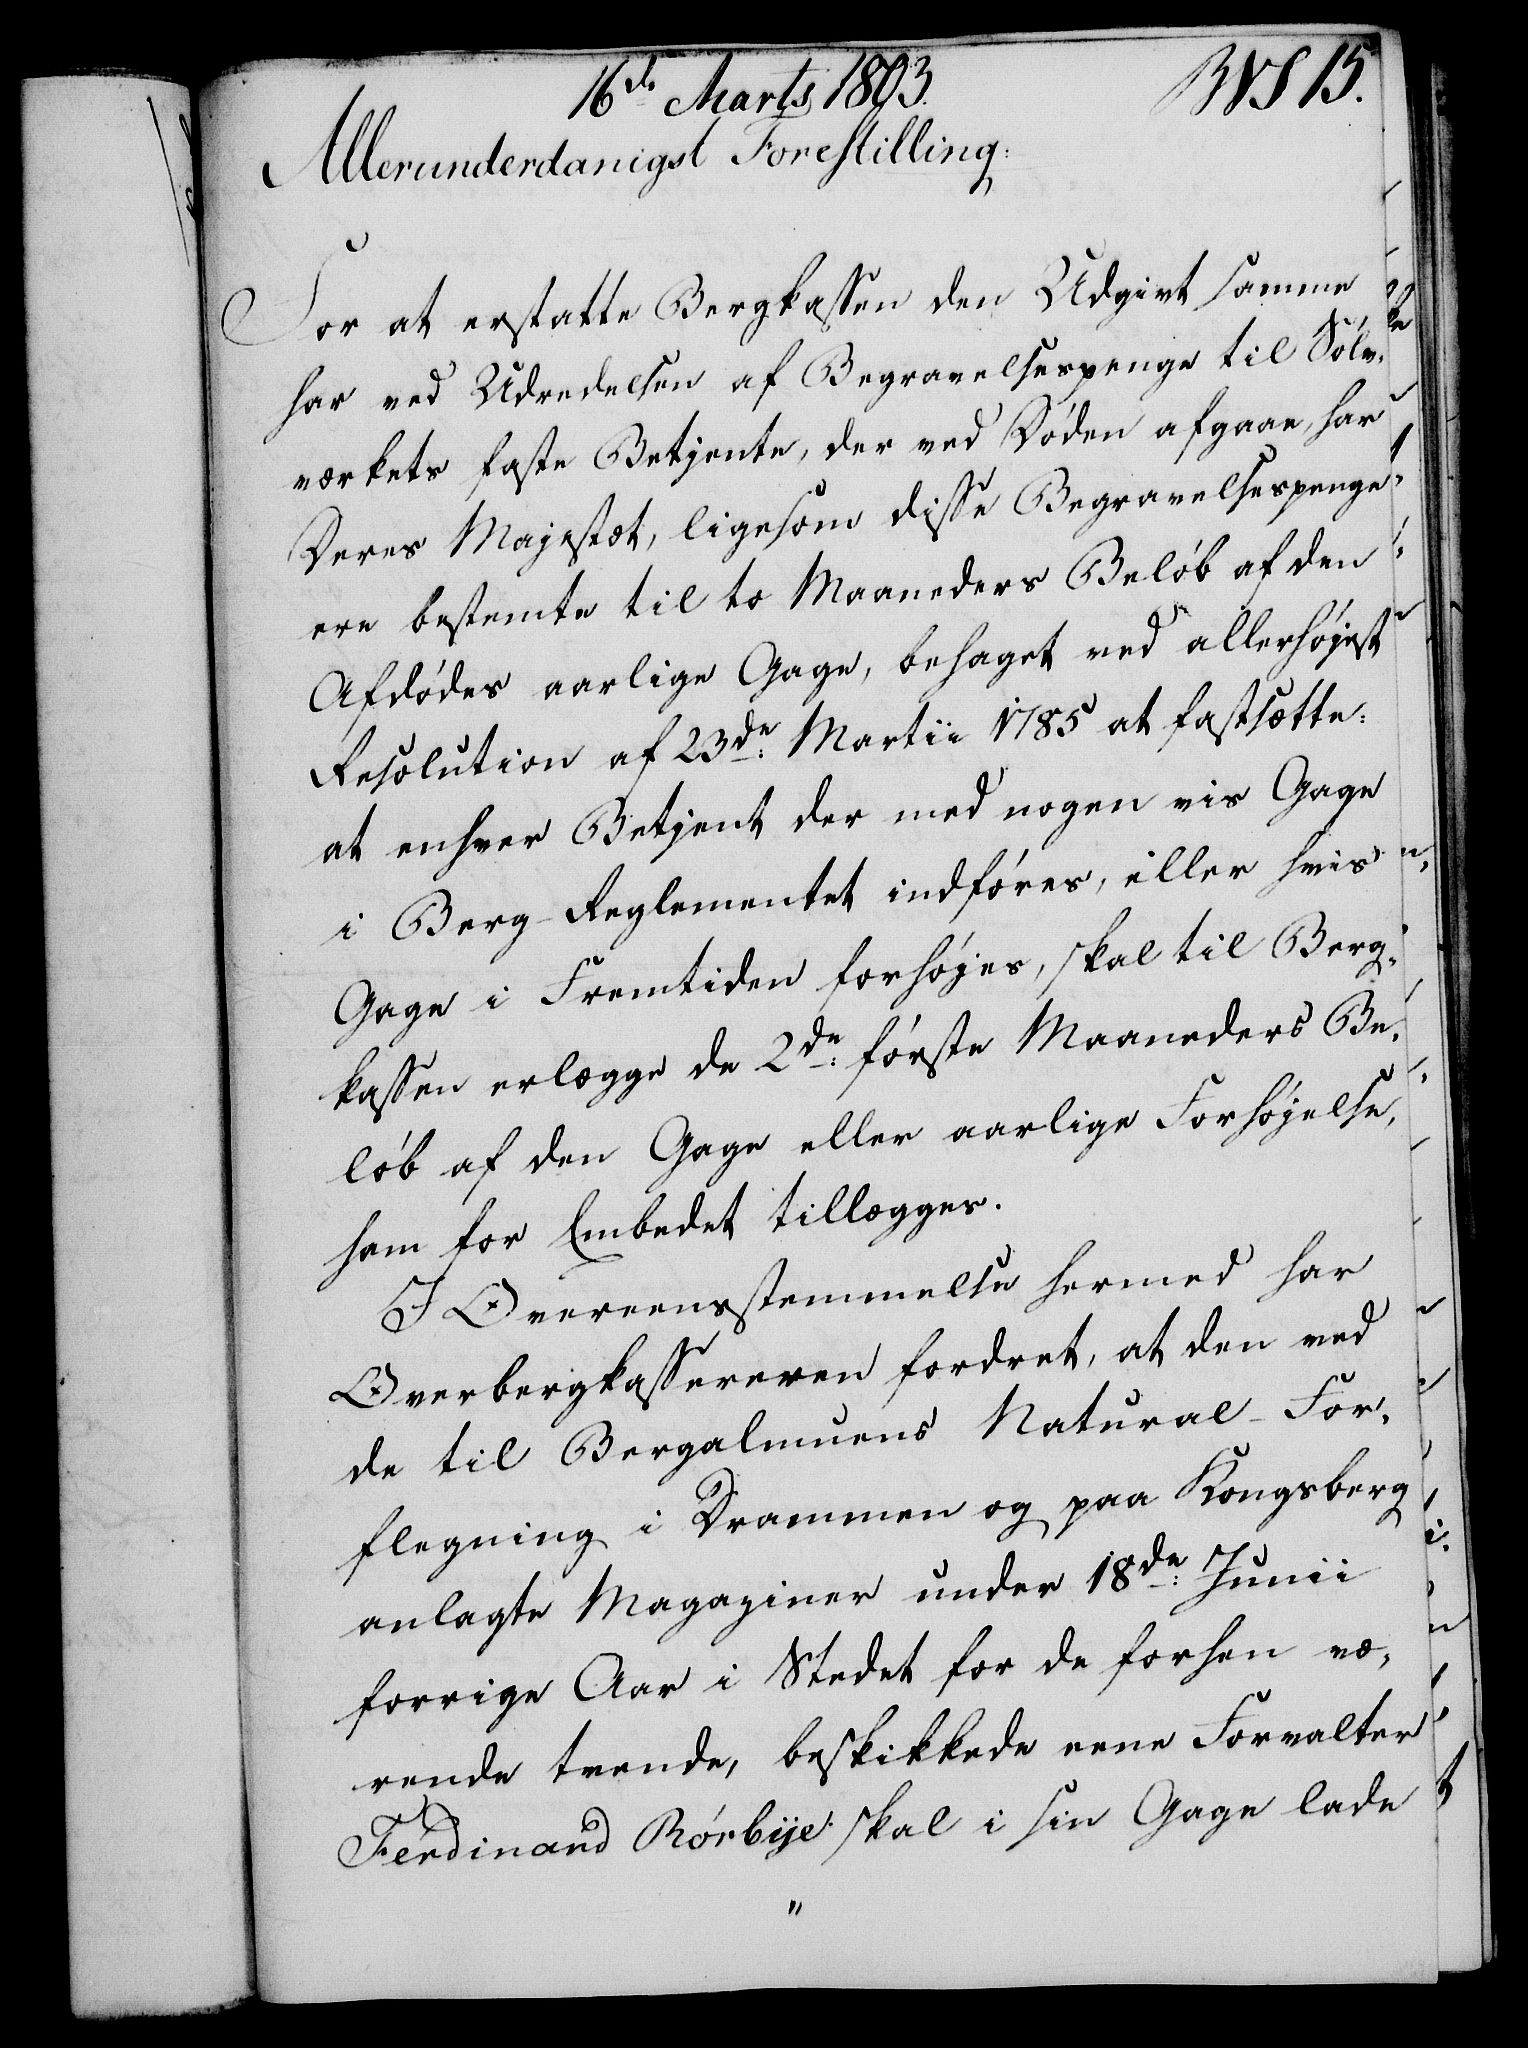 16d. Marts 1803.
BVS 15.
Allerunderdanigst Forestilling:
For at erstatte Bergkassen den Udgivt samme
har ved Udredelsen af Begravelsespenge til Sølv,
værkets faste Betjente, der ved Døden afgaae, har
Deres Majestæt, ligesom disse Begravelsespenge
ere bestemte til to Maaneders Beløb af den
Afdødes aarlige Gage, behaget ved allerhøjest
Resolution af 23de: Martii 1785 at fastsætte:
at enhver Betjent der med nogen vis Gage
i Berg-Reglementet indføres, eller hvis
Gage i Fremtiden forhøjes, skal til Berg,
kassen erlægge de 2de: første Maaneders Be,
løb af den Gage eller aarlige Forhøjelse,
ham for Embedet tillægges.
I Overeensstemmelse hermed har
Overbergkassereren fordret, at den ved
de til Bergalmuens Natural-For,
flegning i Drammen og paa Kongsberg
anlagte Magaziner under 18de: Junii
forrige Aar i Stedet for de forhen væ,
rende tvende, beskikkede eene Forvalter
Ferdinand Rørbije skal i sin Gage lade
"